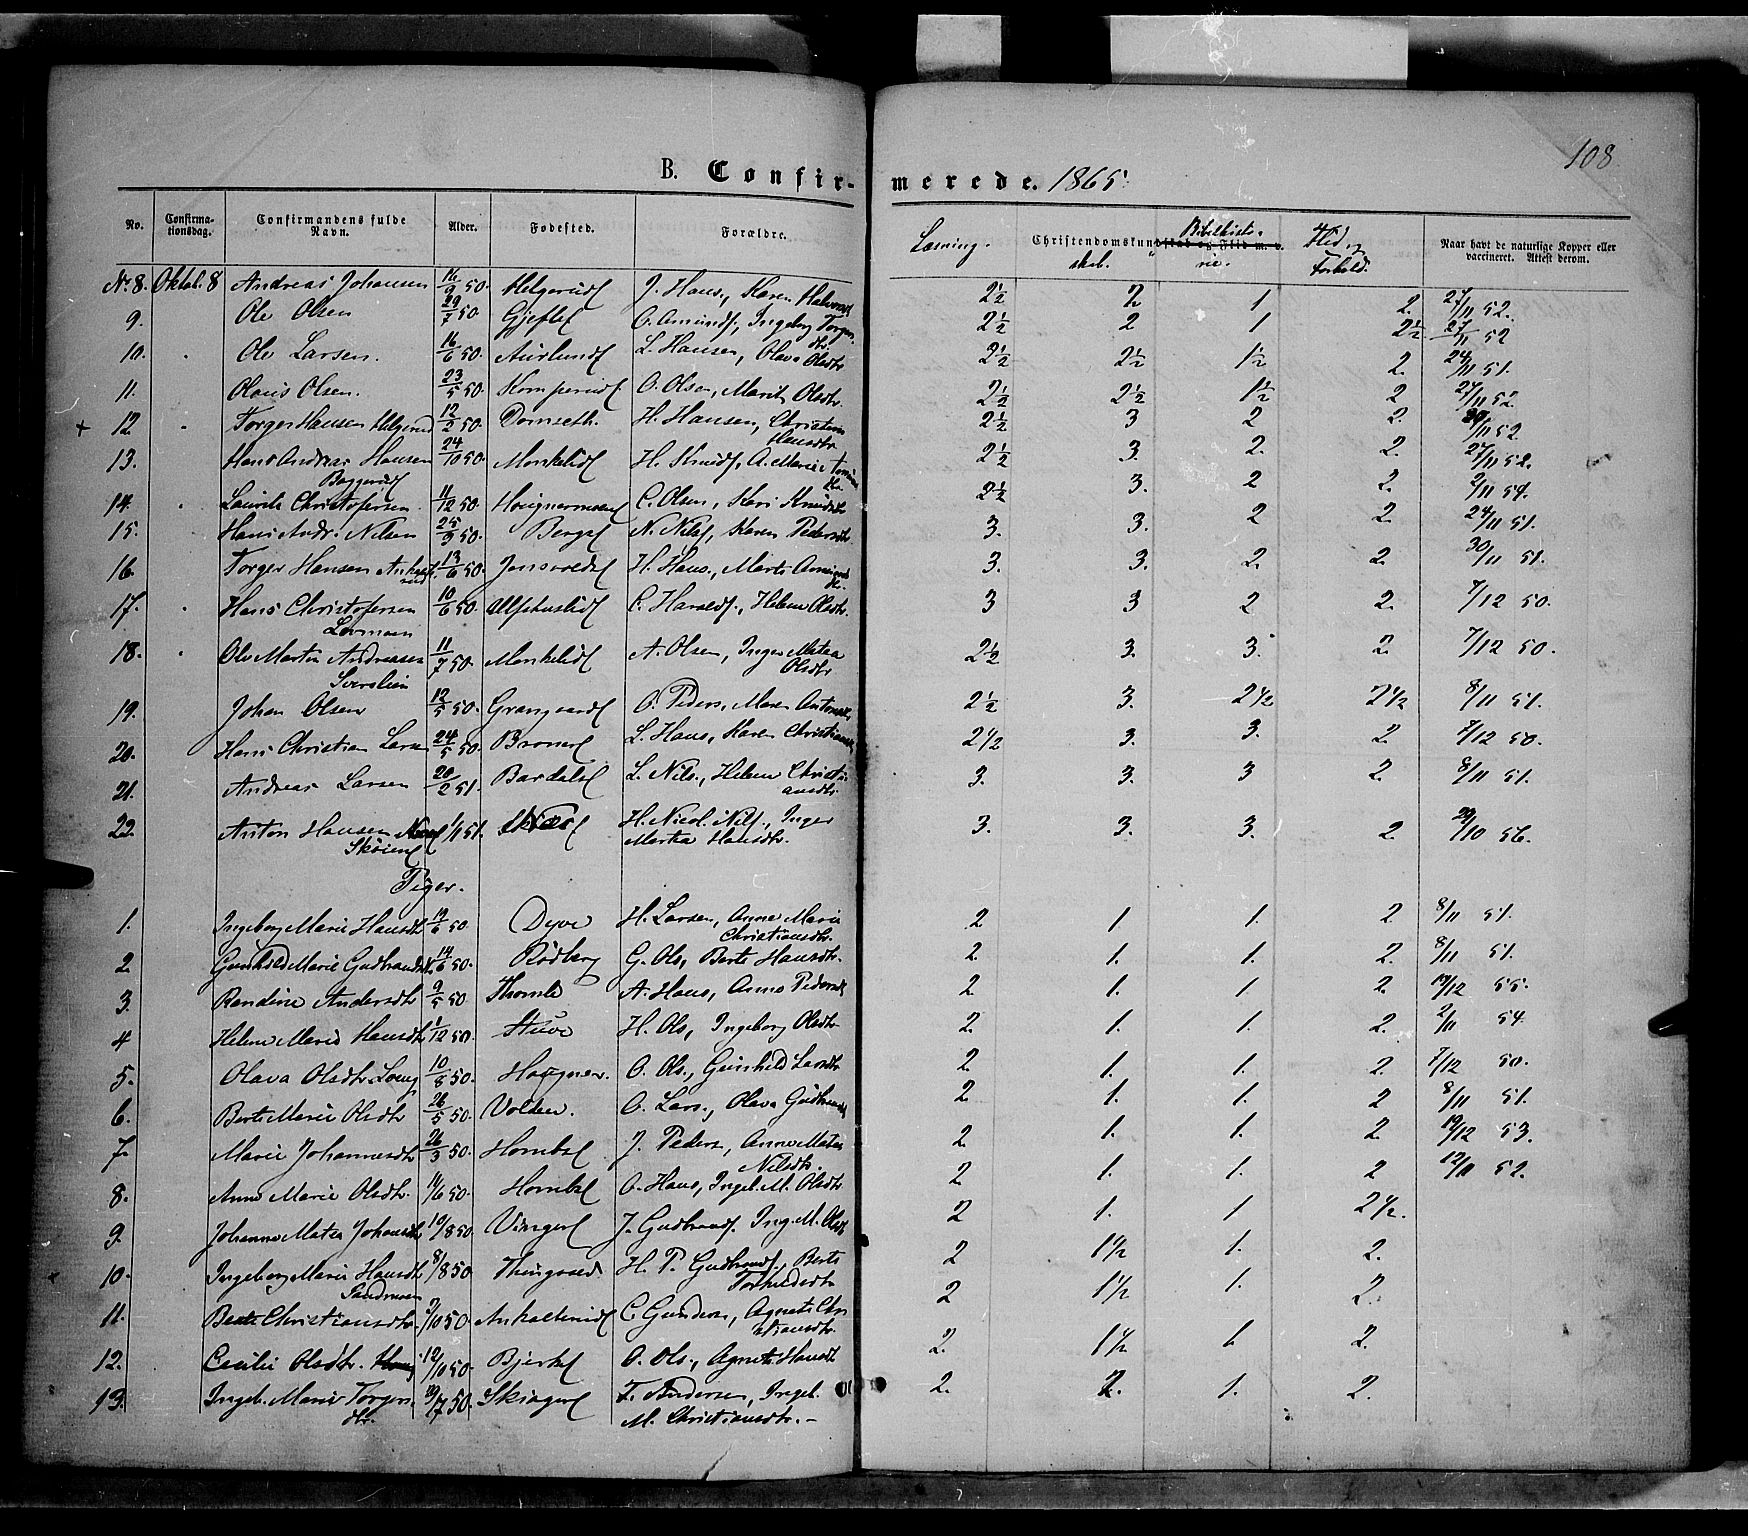 108
B. Confirmerede. 1865.
No. Confirmationsdag. Confirmandens fulde Navn. Alder. Fødested. Forældre. Læsning. Christendomskundskab. Bibelhistorie. Flid og Forhold. Naar havt de naturlige Kopper eller vaccineret. Attest derom.
No 8. Oktob. 8 Andreas Johansen 16/9 50. Helgerudf J. Hans., Karen Halvorsd 2½ 2 1 2. 27/11 52.
9. Ole Olsen 29/7 50. O. Amundf, Ingeborg Torgersdtr. 2½ 2 1 2½ 27/11 52
10. Ole Larsen. 16/6 50. Aurlundf L. Hansen, Olava Olsdtr 2½ 2½ 1½ 2. 24/11 51.
11. Olaus Olsen. 23/5 50. Kornperudf O. Olsen, Marit Olsdtr. 2½ 2½ 1½ 2 27/11 52.
+ 12. Torger Hansen Helgerud 12/2 50. Domseth. H. Hansen, Christine Hansdtr 2½ 3 2 2. /11 52
13. Hans Andreas Hansen Baggerudf 24/10 50. Monkelidf H. Knudf, A. Marie 2½ 3. 2. 2. 27/11 52.
14. Laurits Christofersen. 11/12 50. C. Olsen, Kari Knudsdtr 2½ 3. 2 2. 2/11 54.
15. Hans Andr. Nilsen 25/3 50. Bergsf N. Nilsf, Karen Pedersdtr. 3. 3. 2 2. 24/11 51.
16. Torger Hansen 13/6 50. H. Hans., Marte 3. 3. 2. 2. 30/11 51.
17. Hans Christofersen Lovmoen 10/6 50. C. Haraldf., Helene Olsdtr. 3 3 2 2. 7/12 50.
18. Ole Martin Andreasen 11/7 50. Monkelidf A. Olsen, Inger Matea Olsdtr 2½ 3. 3. 2. 7/12 50.
19. Johan Olsen 12/5 50. Grangaardf O. Peders., Maren 2½ 3. 2½ 2½ 8/11 51.
20. Hans Christian Larsen 24/5 50. L. Hans., Karen Christiansd 2½ 3. 3. 2. 7/12 50.
21. Andreas Larsen 20/2 51. Bardalsf L. Nils., Helene Christiansdtr 3. 3. 3 2. 8/11 51.
22. Anton Hansen Skøienf 1/1 51. H. Nicol. Nilsf, Inger Martha Hansdtr. 3. 3. 3. 2. 29/10 56.
Piger.
1. Ingeborg Marie Hansdtr. 19/6 50. Dyve H. Larsen, Anne Marie Christiansdtr. 2 1 1. 2 8/11 51.
2 Gunhild Marie Gudbrandsd. 14/6 50. Rødberg G. Ols, Berte Hansdtr. 2. 1. 1. 2. 8/11 51.
3. Randine Andersdtr 9/5 50. Thomle A. Hans, Anne Pedersd 2. 1. 1. 2. 19/12 55.
4 Helene Marie Hansdtr 1/12 50. Stuve H. Ols, Ingeborg Olsdtr 2. 1. 1. 2. 2/11 54
5. Olava Olsdtr. 10/8 50. Hougner. O. Ols., Gunhild Larsdtr 2. 1. 1. 2. 7/12 50.
6. Berte Marie Olsdtr 26/5 50. Volden. O. Lars., Olava Gudbrandsd 2 1. 1. 2 8/11 51.
7. Marie Johannesdtr 26/3 50. Hornbsf J. Peders, Anne Matea Nilsdtr. 2 1. 1. 2. 19/12 53.
8. Anne Marie Olsdtr. 11/6 50. Hornbsf O. Hans, Ingeb. M. Olsdtr 2 1. 1. 2 12/11 52.
9. Johanne Matea Johansdtr 10/8 50. Vingerf J. Gudbrandf. Ing. M. Olsd 2 1. 1 2½.
10. Ingeborg Marie Hansdtr Sandmoen 8/8 50. Thingstad. H. P. Gudbrandf, Berte Torkildsdtr 2 1½ 1. 2.
11. Berte Christiansdtr. 9/10 50. C. Gunders, Agnete Christiansdtr. 2 1½ 1. 2.
12. Cecilie Olsdtr. 12/10 50. Bjerkef O. Ols., Agnete Hansdtr 2. 1½ 1 2.
13. Ingeb. Marie Torgersdtr. /7 50. Skiagerf T. Andersen, Ingeb. M. Christiansdtr. 2. 2. 1. 2.